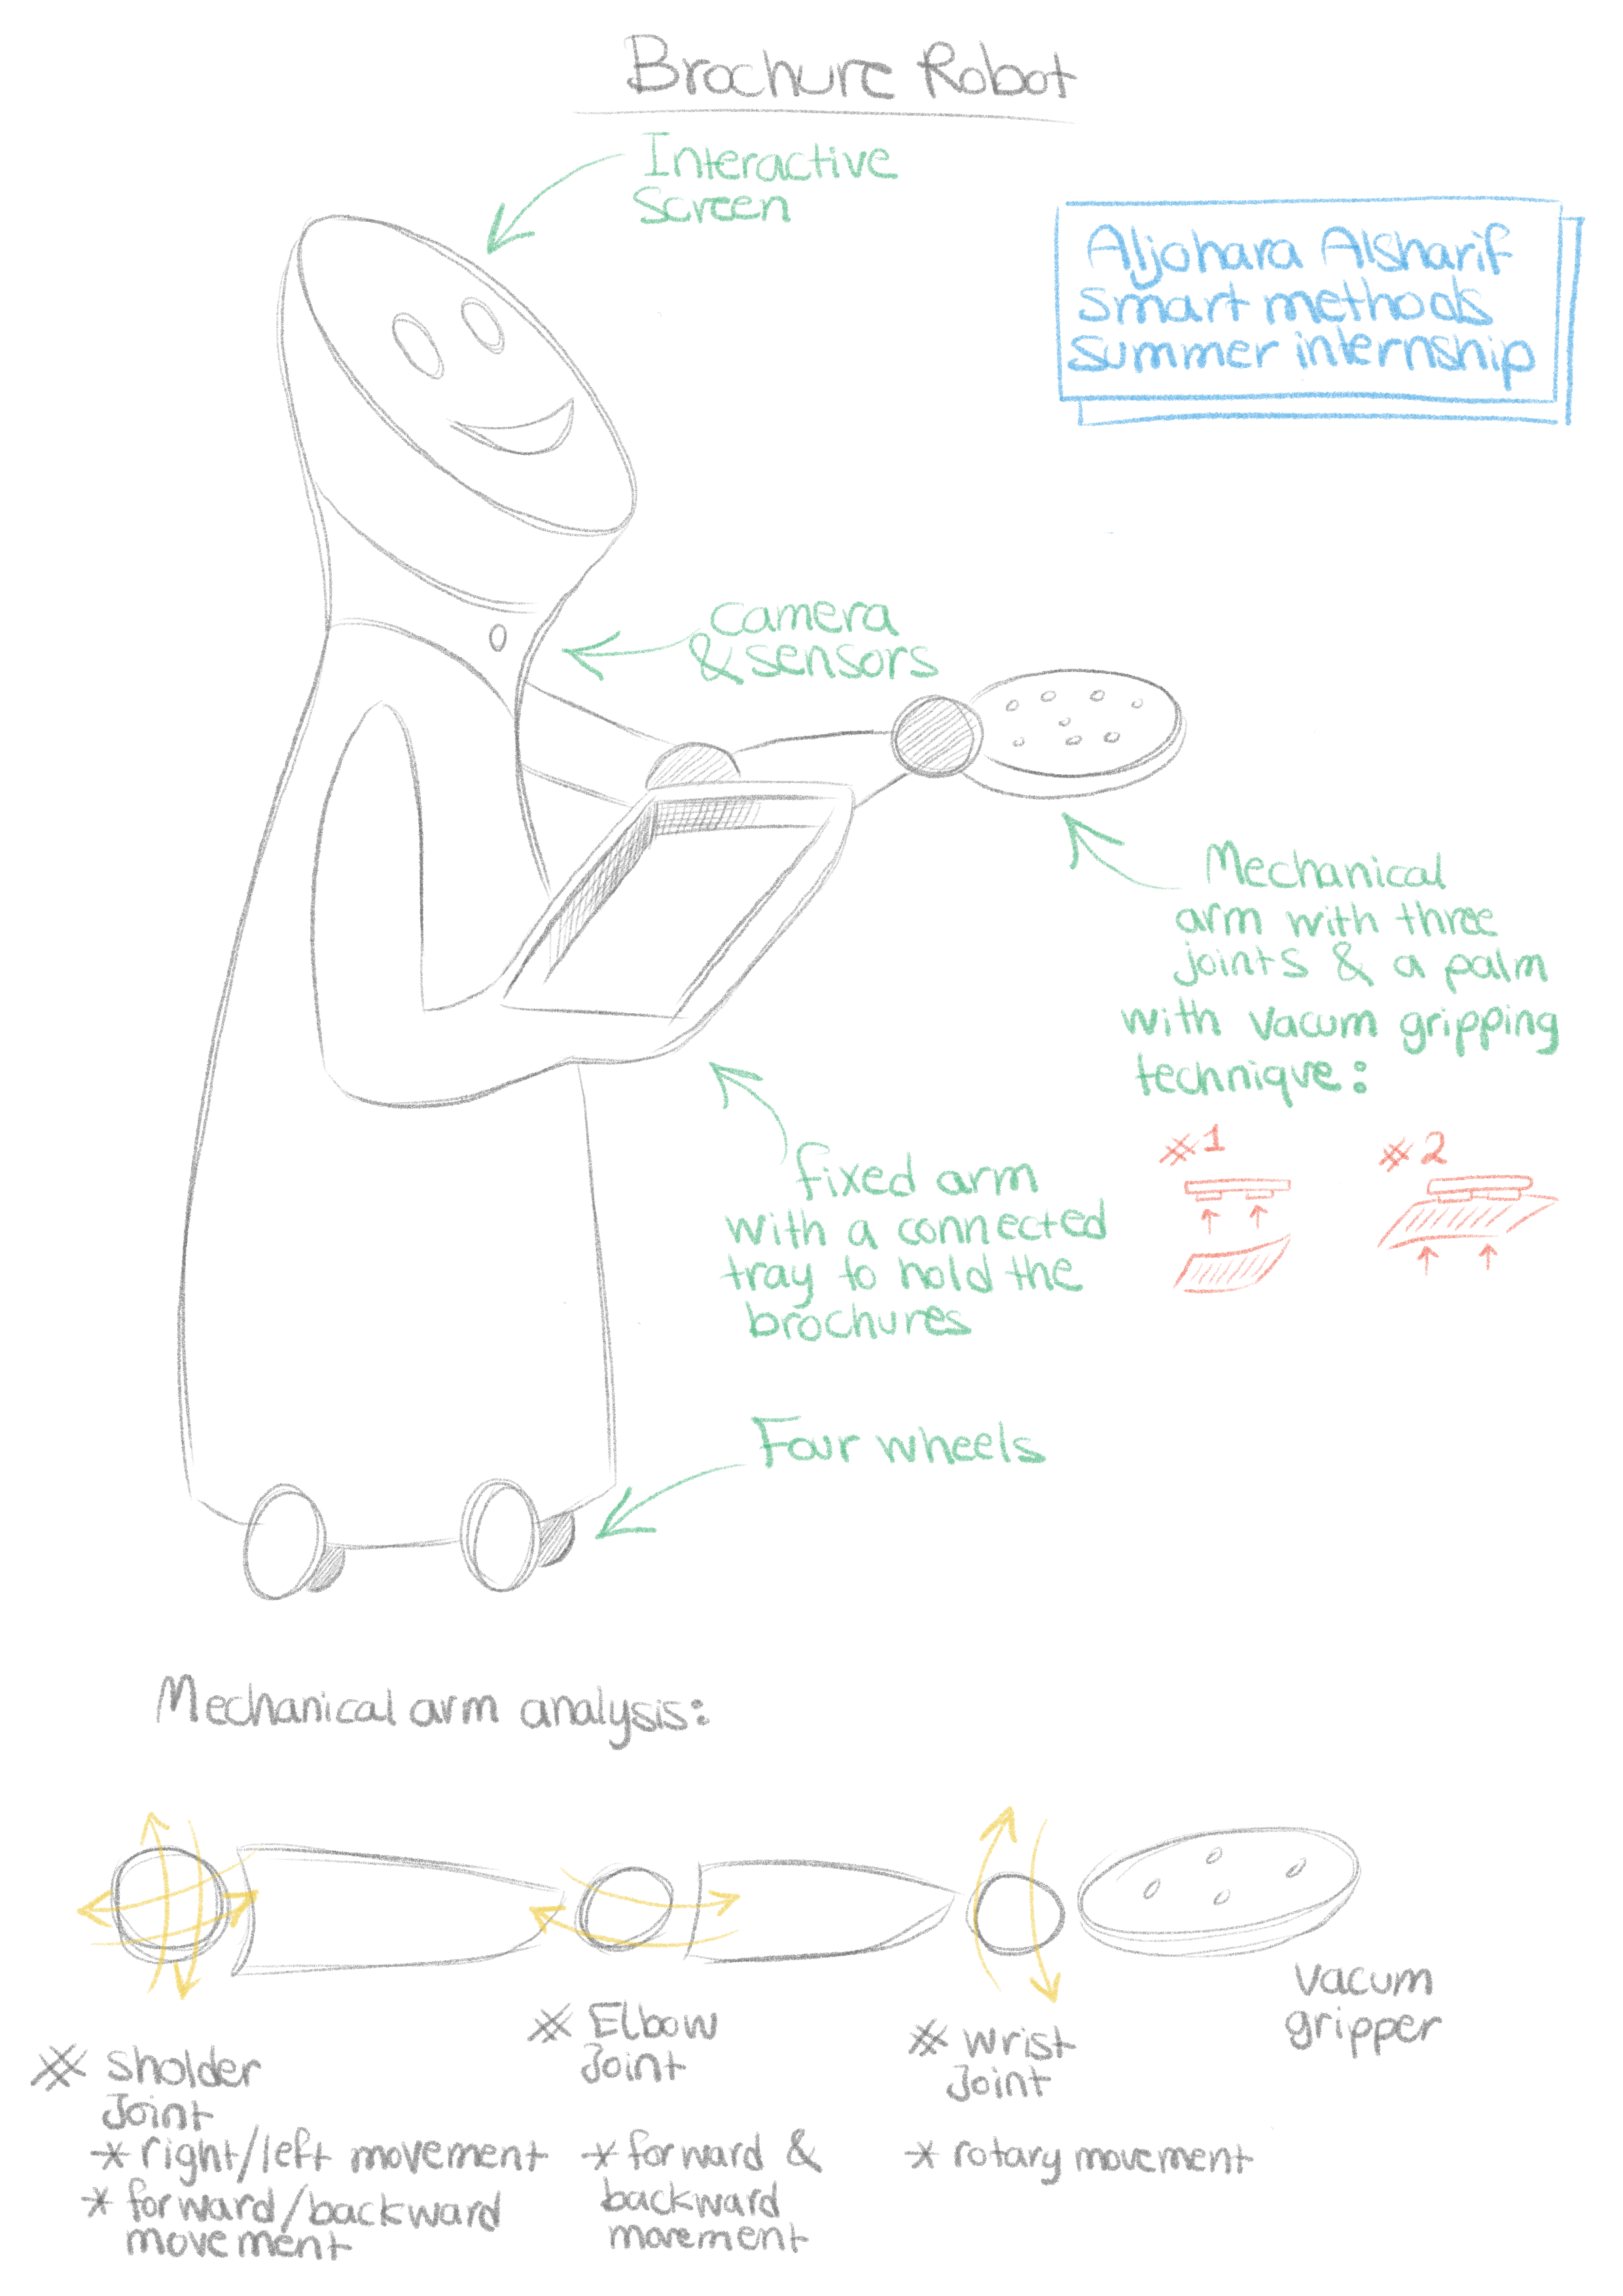 Brochure Robot
Interactive
Screen
Aljohara Alsharif
smart methods
summer internship
camera
& sensors
Mechanical
arm with three
joints & a palm
with vacum gripping
technique:
#1
#2
fixed arm
with a connected
tray to hold the
brochures
Four wheels
Mechanical arm analysis:
vacum
gripper
# Sholder
Joint
* right/left movement
* forward/backward
movement
# Elbow
Joint
* forward &
backward
movement
# wrist
Joint
* rotary movement